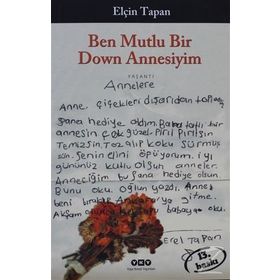 Elçin Tapan
Ben Mutlu Bir
Down Annesiyim
YAŞANTI
Annelere
Anne, çiçekleri dışarıdan topladım
Sana hediye aldım. Bana tatlı bir
annesin çok güzel. Pırıl Pırılsın
Temizsin. Toz alıp koku sürmüş
sün. Senin elini öpüyorum. iyi
gününüz kutlu olsun anneler.
Anneciğim bu Sana hediye olsun.
Bunu oku. Oğlun yazdı. Anne
beni bırakıp Ankara'ya gitme.
Akşam olunca babaya oku.
Erel Tapan
YKY
13. baskı